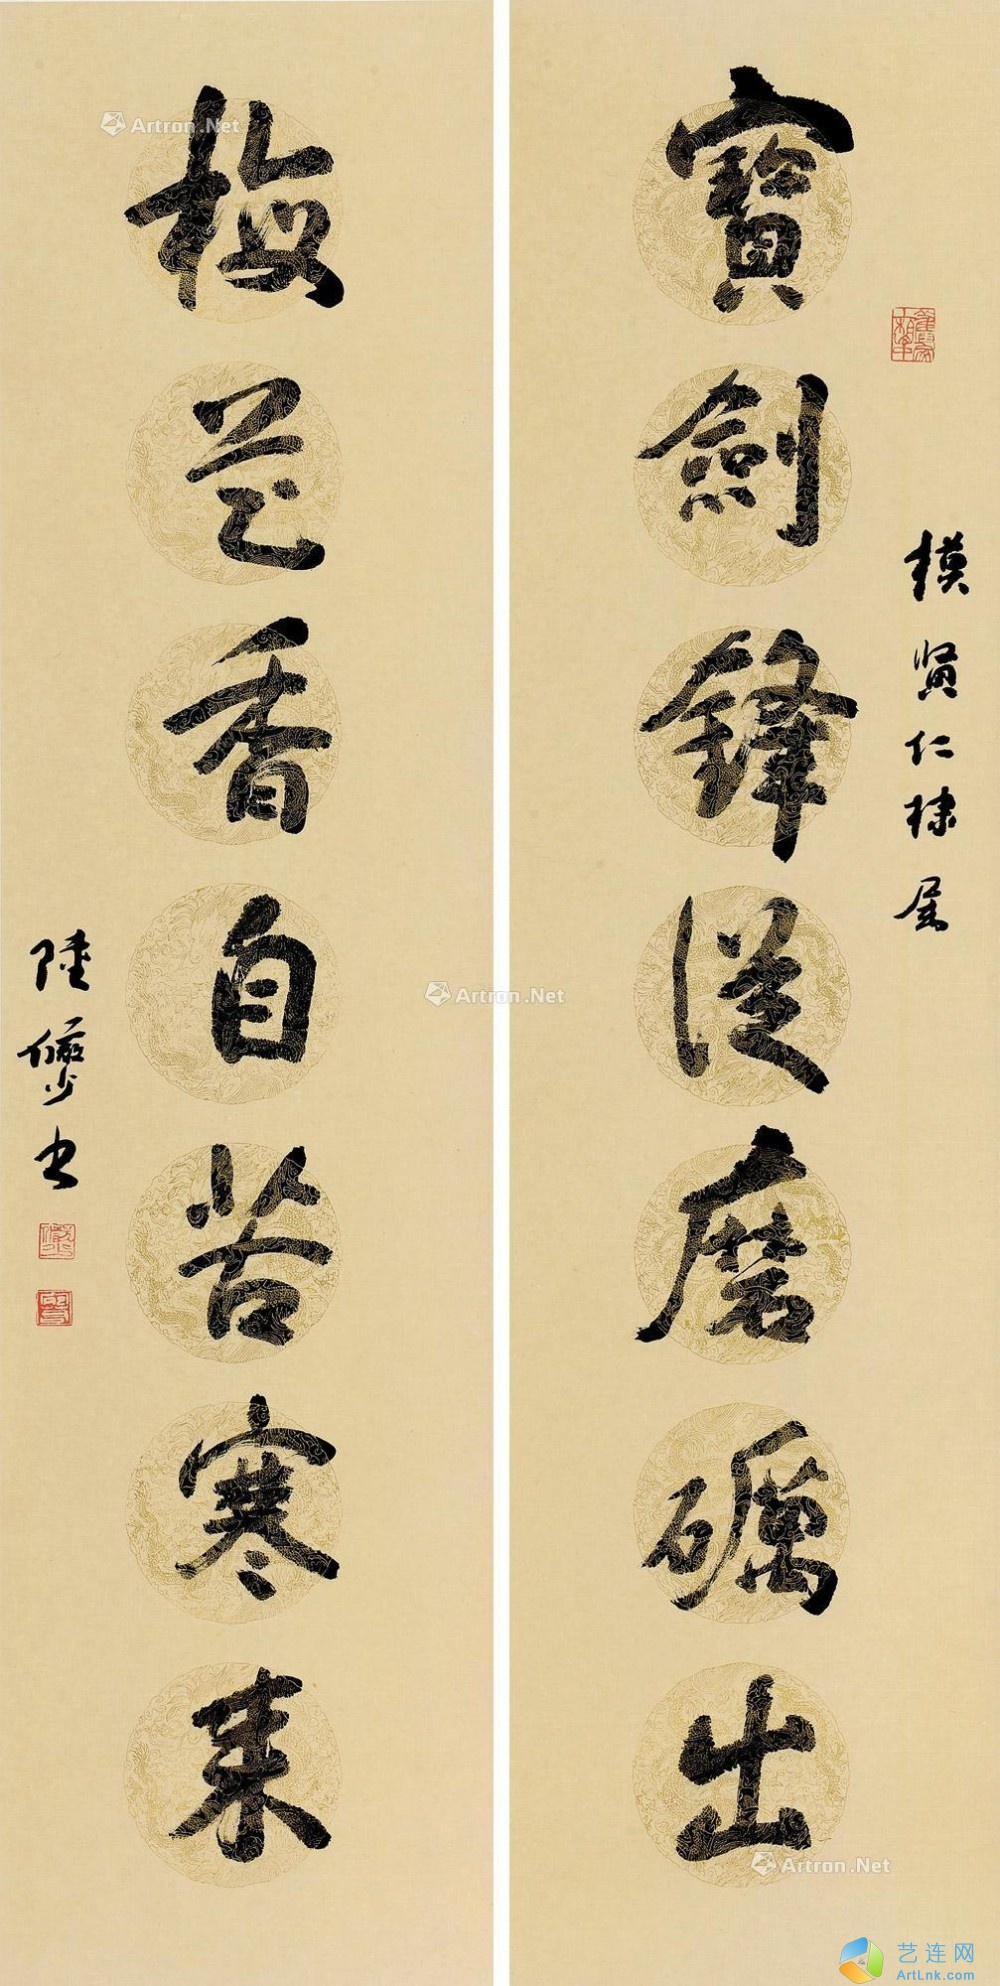 模賢仁棣屬
寶劍鋒從磨礪出
梅花香自苦寒來
陸儼少書
Artron.Net
Artron.Net
Artron.Net
艺连网
ArtLnk.com